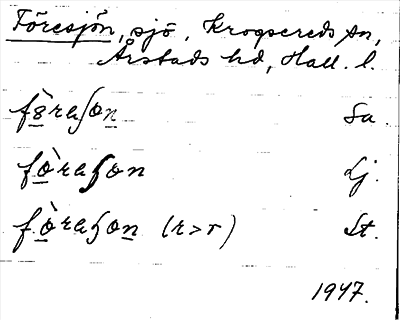 Föresjön, sjö. Krogsereds sn,
Årstads hd, Hall. l.
fö̀raʃon Sa.
fö̀raʃon Lj.
fö̀raʃon (r>r) St.
1947.